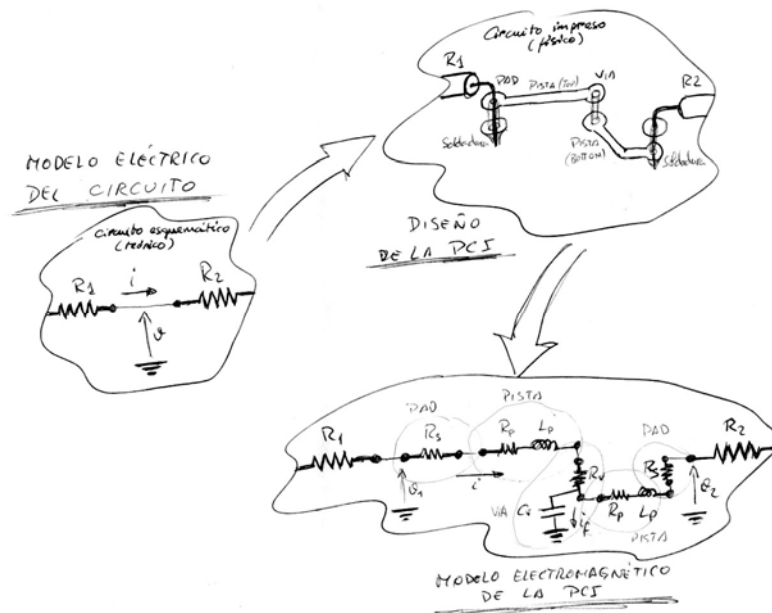 MODELO ELÉCTRICO
DEL CIRCUITO
Circuito esquemático
(teórico)
R1
i
R2
v
Circuito impreso
(físico)
R1
PAD
PISTA (Top)
VIA
R2
Soldadura
PISTA
(BOTTOM)
Soldadura
DISEÑO
DE LA PCI
PISTA
PAD
R1
Rs
Rp
Lp
PAD
R2
v1
i
Rv
Rs
v2
VIA
Cv
if
Rp
Lp
PISTA
MODELO ELECTROMAGNÉTICO
DE LA PCI